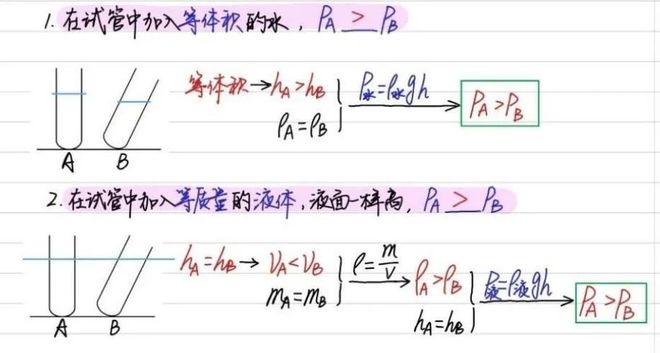 1. 在试管中加入等体积的水，P_A > P_B
等体积→h_A>h_B P_水=ρ_水gh P_A>P_B
ρ_A=ρ_B
A B
2. 在试管中加入等质量的液体，液面一样高，P_A > P_B
h_A=h_B→V_A<V_B ρ=m/V ρ_A>ρ_B P_液=ρ_液gh P_A>P_B
m_A=m_B h_A=h_B
A B